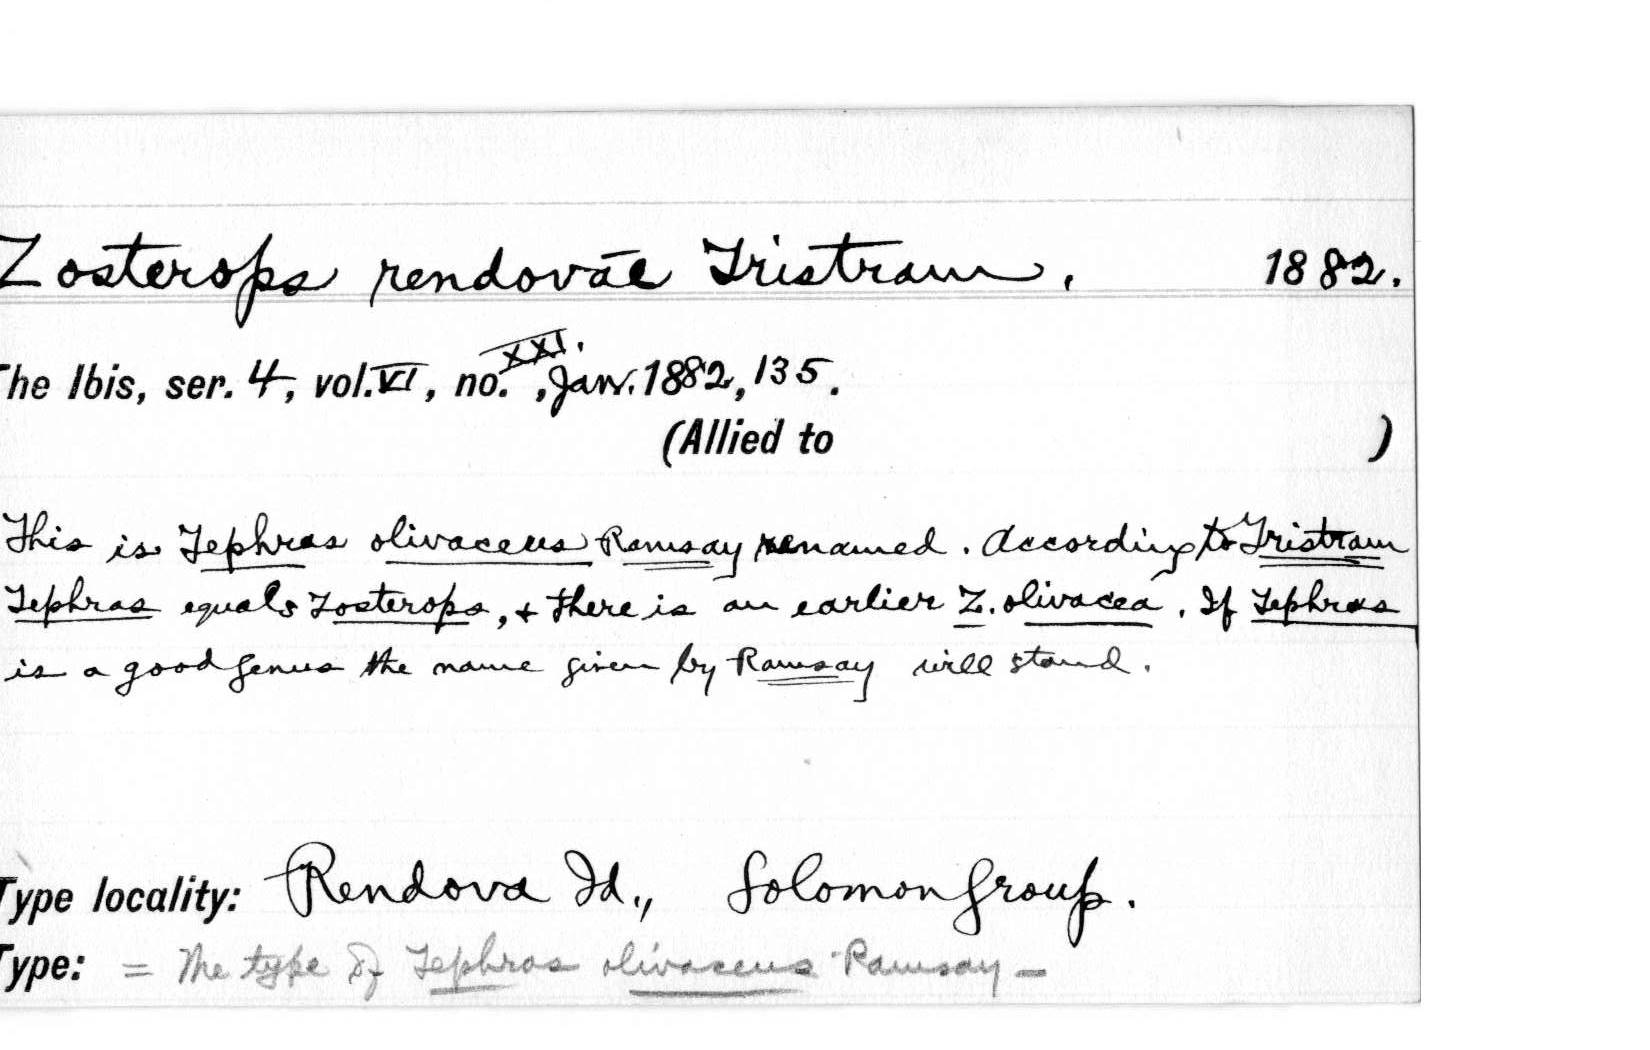 Zosterops rendovae Tristram. 1882.
The Ibis, ser. 4, vol. VI, no. XXI., Jan. 1882, 135.
(Allied to )
This is Tephras olivaceus Ramsay renamed. According to Tristram
Tephras equals Zosterops, & there is an earlier Z. olivacea. If Tephras
is a good genus the name given by Ramsay will stand.
Type locality: Rendova Id., Solomon Group.
Type: = The type of Tephras olivaceus Ramsay -